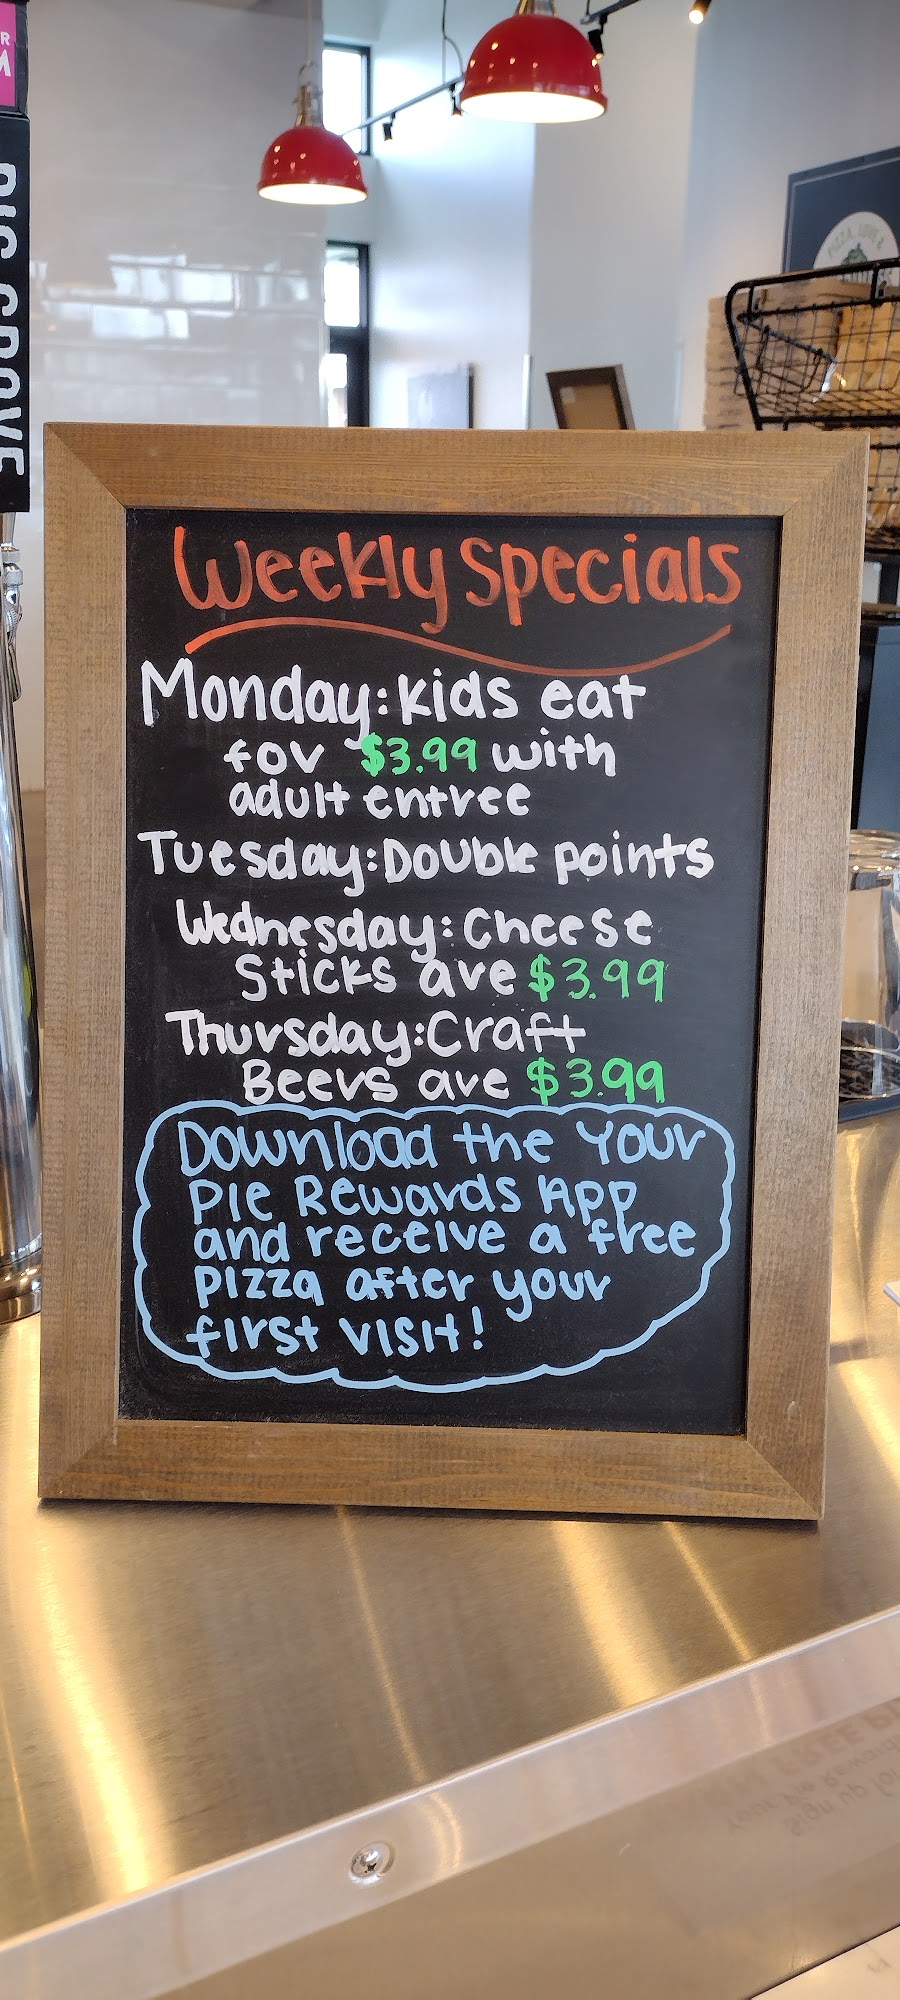 BIG GROVE
PIZZA, LOVE &
Weekly Specials
Monday: kids eat
for $3.99 with
adult entree
Tuesday: Double points
Wednesday: Cheese
Sticks are $3.99
Thursday: Craft
Beers are $3.99
Download the Your
Pie Rewards App
and receive a free
pizza after your
first visit!
Sign up for
Your Pie Rewards